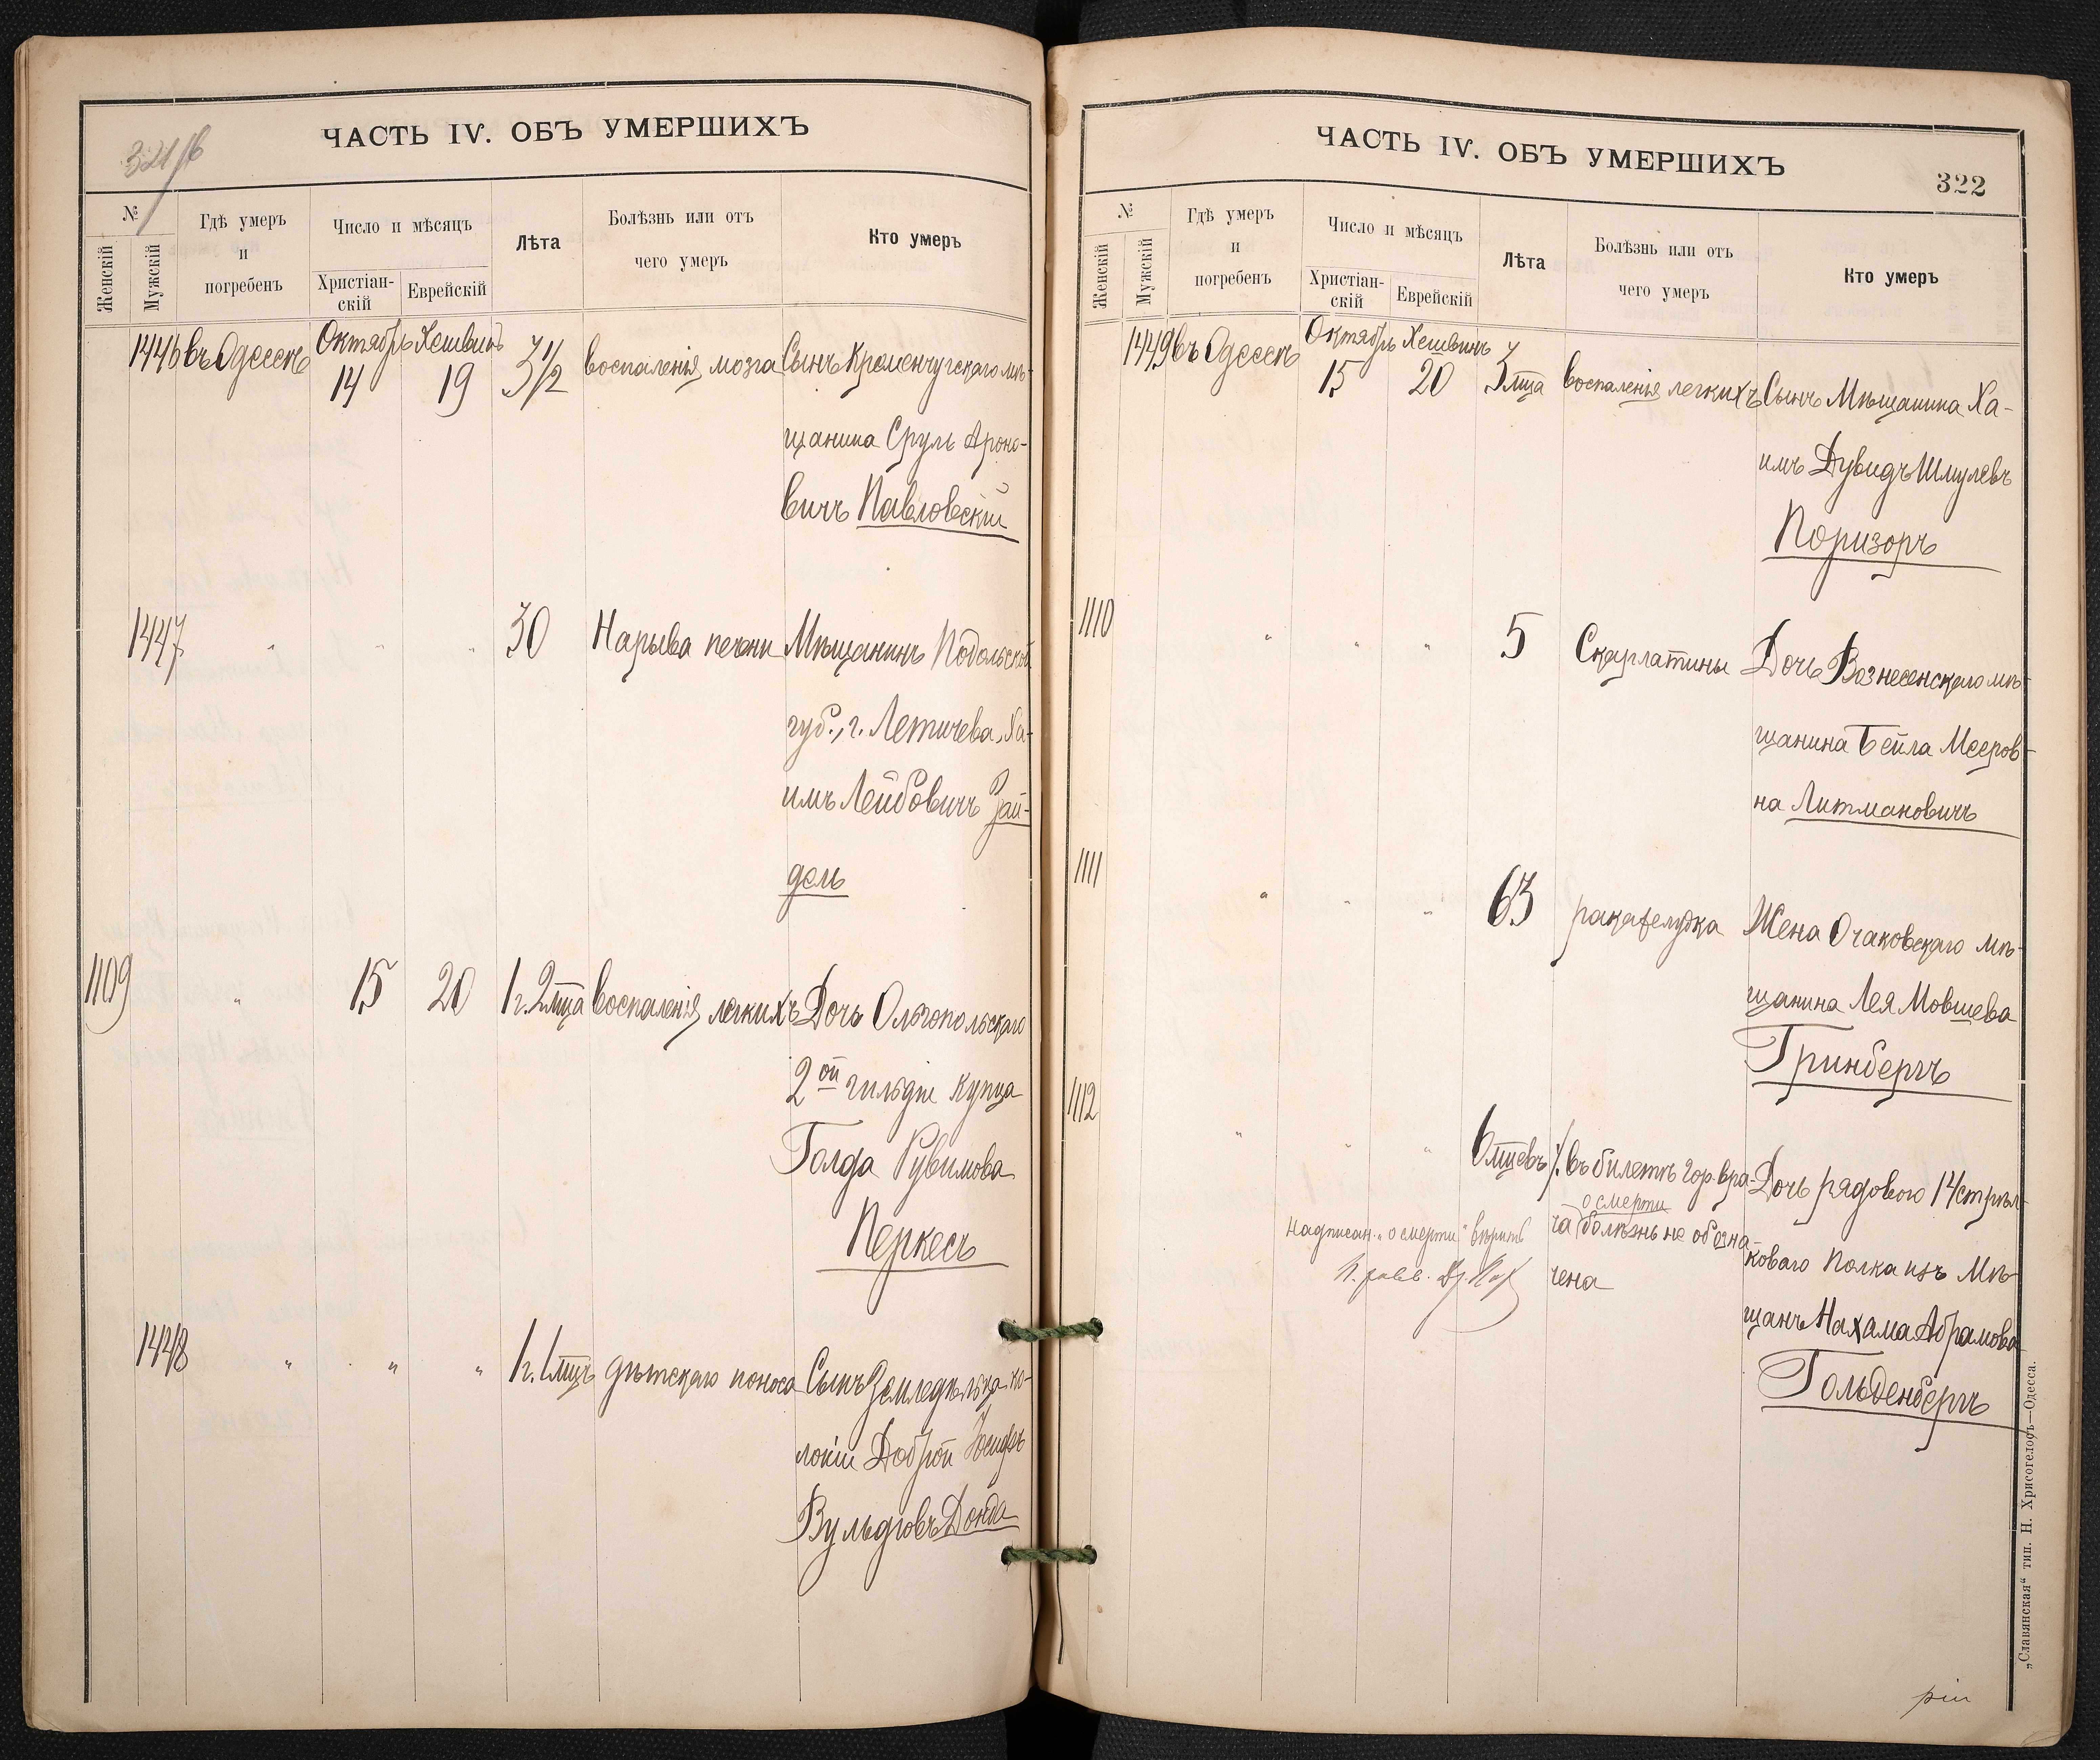 321/б
ЧАСТЬ IV. ОБЪ УМЕРШИХЪ
№
Женскій
Мужскій
Гдѣ умеръ
и
погребенъ
Число и мѣсяцъ
Христіан-
скій
Еврейскій
Лѣта
Болѣзнь или отъ
чего умеръ
Кто умеръ
1446 въ Одессѣ Октябрь 14 Хешвинъ 19 3 1/2 воспаленія мозга Сынъ Кременчугскаго мѣ-
щанина Сруль Ароно-
вичъ Павловскій
1447 " " " 30 Нарыва печени Мѣщанинъ Подольской
губ., г. Летичева, Ха-
имъ Лейбовичъ Зай-
дель
1109 " 15 20 1 г. 2 мца воспаленія легкихъ Дочь Ольгопольскаго
2ой гильдіи купца
Голда Рувимова
Перкесъ
1448 " " " 1 г. 1 мцъ дѣтскаго поноса Сынъ Земледѣльца ко-
лоніи Доброй Іосифъ
Вульфовъ Донда
ЧАСТЬ IV. ОБЪ УМЕРШИХЪ
322
№
Женскій
Мужскій
Гдѣ умеръ
и
погребенъ
Число и мѣсяцъ
Христіан-
скій
Еврейскій
Лѣта
Болѣзнь или отъ
чего умеръ
Кто умеръ
1449 въ Одессѣ Октябрь 15 Хешвинъ 20 3 мца воспаленія легкихъ Сынъ Мѣщанина Ха-
имъ Дувидъ Шмулевъ
Поризоръ
1110 " " " 5 Скарлатины Дочь Вознесенскаго мѣ-
щанина Бейла Мееров-
на Литмановичъ
1111 " " " 63 рака желудка Жена Очаковскаго мѣ-
щанина Лея Мовшева
Гринбергъ
1112 " " " 6 мцевъ въ билетѣ гор. вра- Дочь рядового 14 стрѣл-
о смерти
ча болѣзнь не обозна- коваго Полка изъ Мѣ-
чена
щанъ Нахама Абрамова
Гольденбергъ
Надписан. "о смерти" вѣрить
"Славянская" тип. Н. Хрисогелосъ—Одесса.